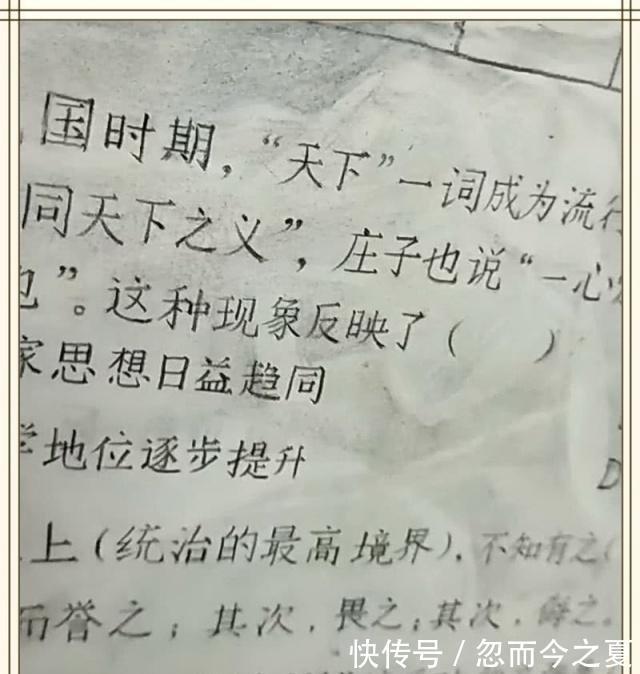 国时期，“天下”一词成为流行
同天下之义”，庄子也说“一心
也”。这种现象反映了（　　）
家思想日益趋同
学地位逐步提升
D
上（统治的最高境界），不知有之（
而誉之；其次，畏之；其次，侮之。
快传号 / 忽而今之夏